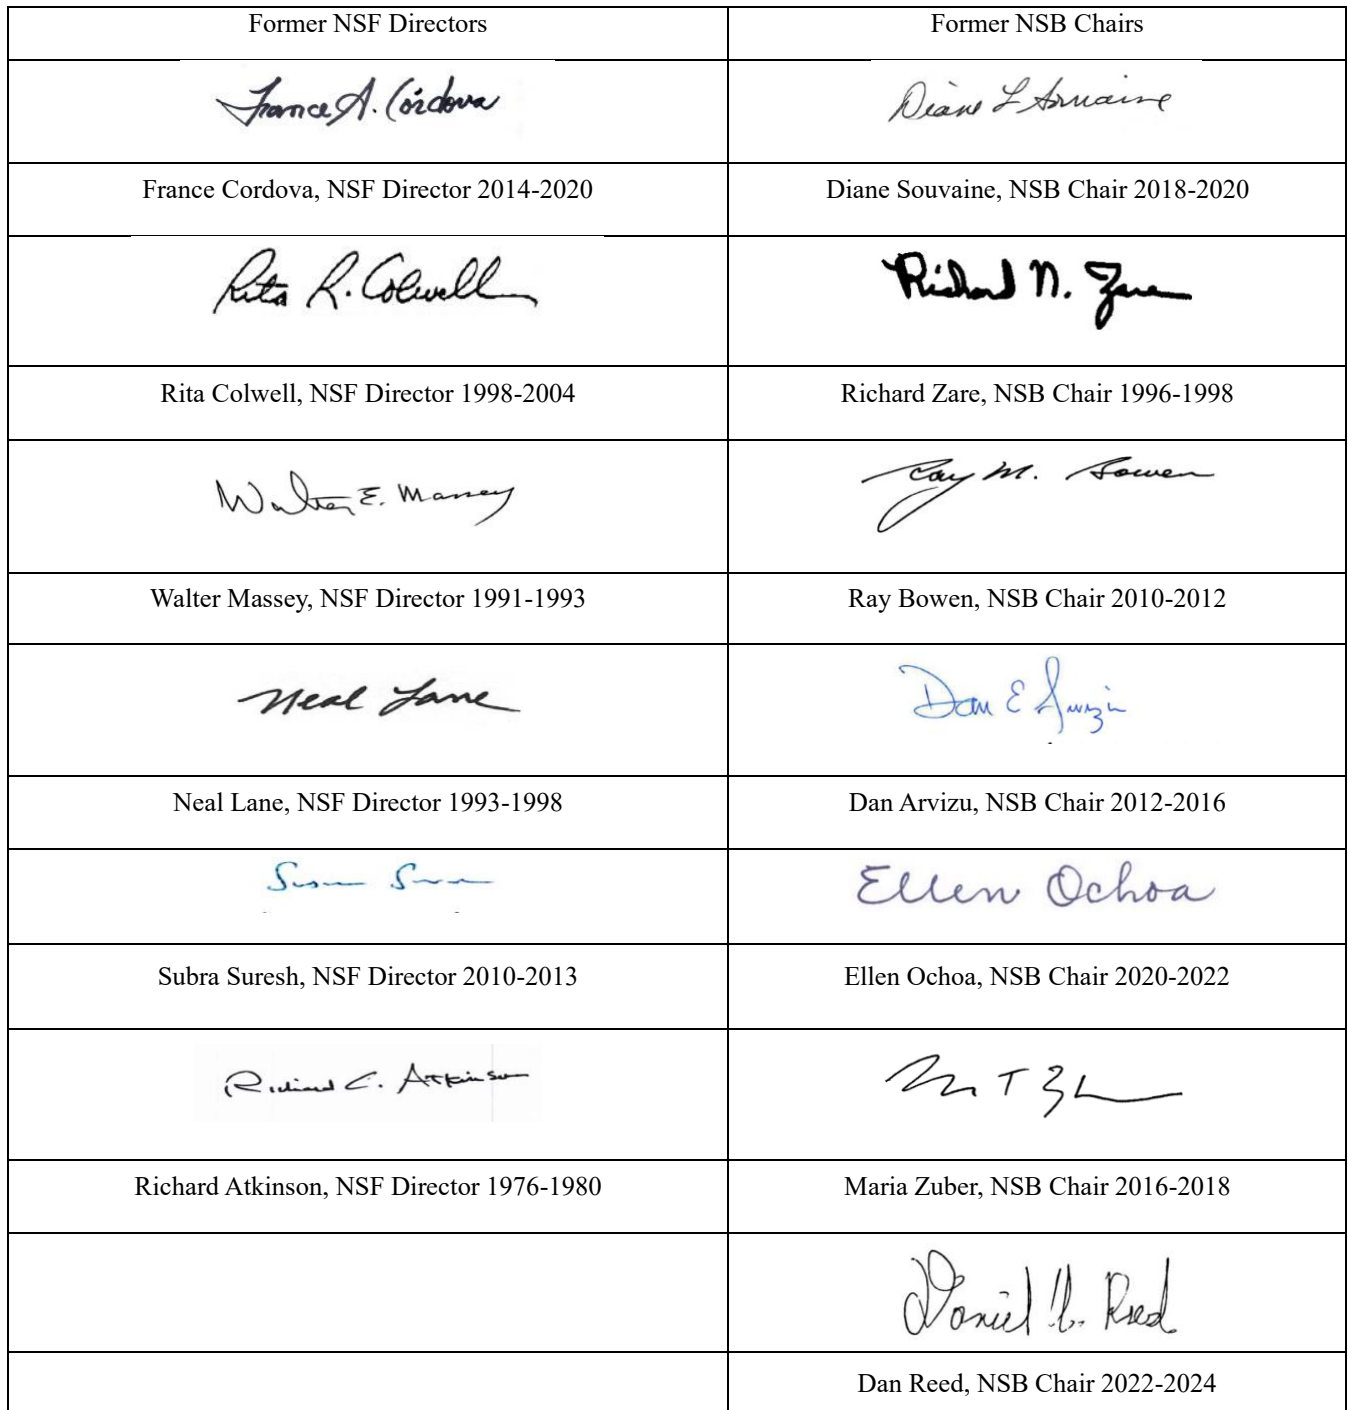 Former NSF Directors
Former NSB Chairs
France A. Córdova
Diane L Souvaine
France Cordova, NSF Director 2014-2020
Diane Souvaine, NSB Chair 2018-2020
Rita R. Colwell
Richard N. Zare
Rita Colwell, NSF Director 1998-2004
Richard Zare, NSB Chair 1996-1998
Walter E. Massey
Ray M. Bowen
Walter Massey, NSF Director 1991-1993
Ray Bowen, NSB Chair 2010-2012
Neal Lane
Dan E Arvizu
Neal Lane, NSF Director 1993-1998
Dan Arvizu, NSB Chair 2012-2016
Ellen Ochoa
Subra Suresh, NSF Director 2010-2013
Ellen Ochoa, NSB Chair 2020-2022
Richard C. Atkinson
Richard Atkinson, NSF Director 1976-1980
Maria Zuber, NSB Chair 2016-2018
Daniel A. Reed
Dan Reed, NSB Chair 2022-2024